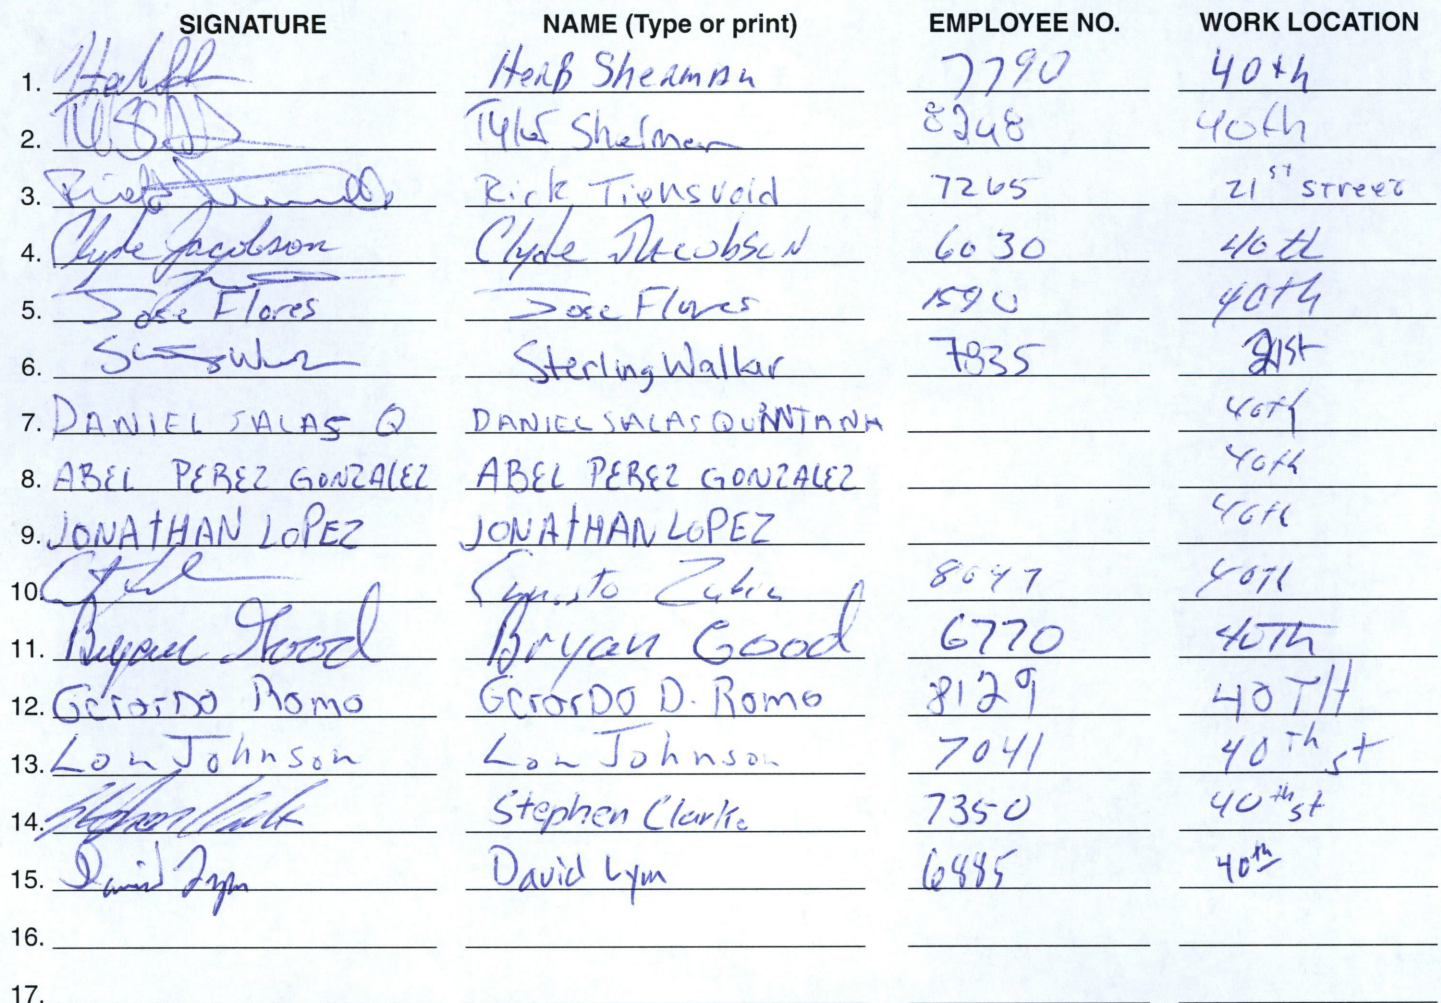 SIGNATURE NAME (Type or print) EMPLOYEE NO. WORK LOCATION
1. Herb Sherman 7790 40th
2. Tyler Sherman 8248 40th
3. Rick Tiensvold 7265 21st street
4. Clyde Jacobson Clyde Jacobson 6030 40th
5. Jose Flores Jose Flores 1590 40th
6. Sterling Walkar 7835 21st
7. DANIEL SALAS Q DANIEL SALAS QUINTANA 40th
8. ABEL PEREZ GONZALEZ ABEL PEREZ GONZALEZ 40th
9. JONATHAN LOPEZ JONATHAN LOPEZ 40th
10. 8047 40th
11. Bryan Good Bryan Good 6770 40Th
12. GerarDo Romo GerarDO D. Romo 8129 40TH
13. Lon Johnson Lon Johnson 7041 40th st
14. Stephen Clarke 7350 40th st
15. David Lym David Lym 6885 40th
16.
17.